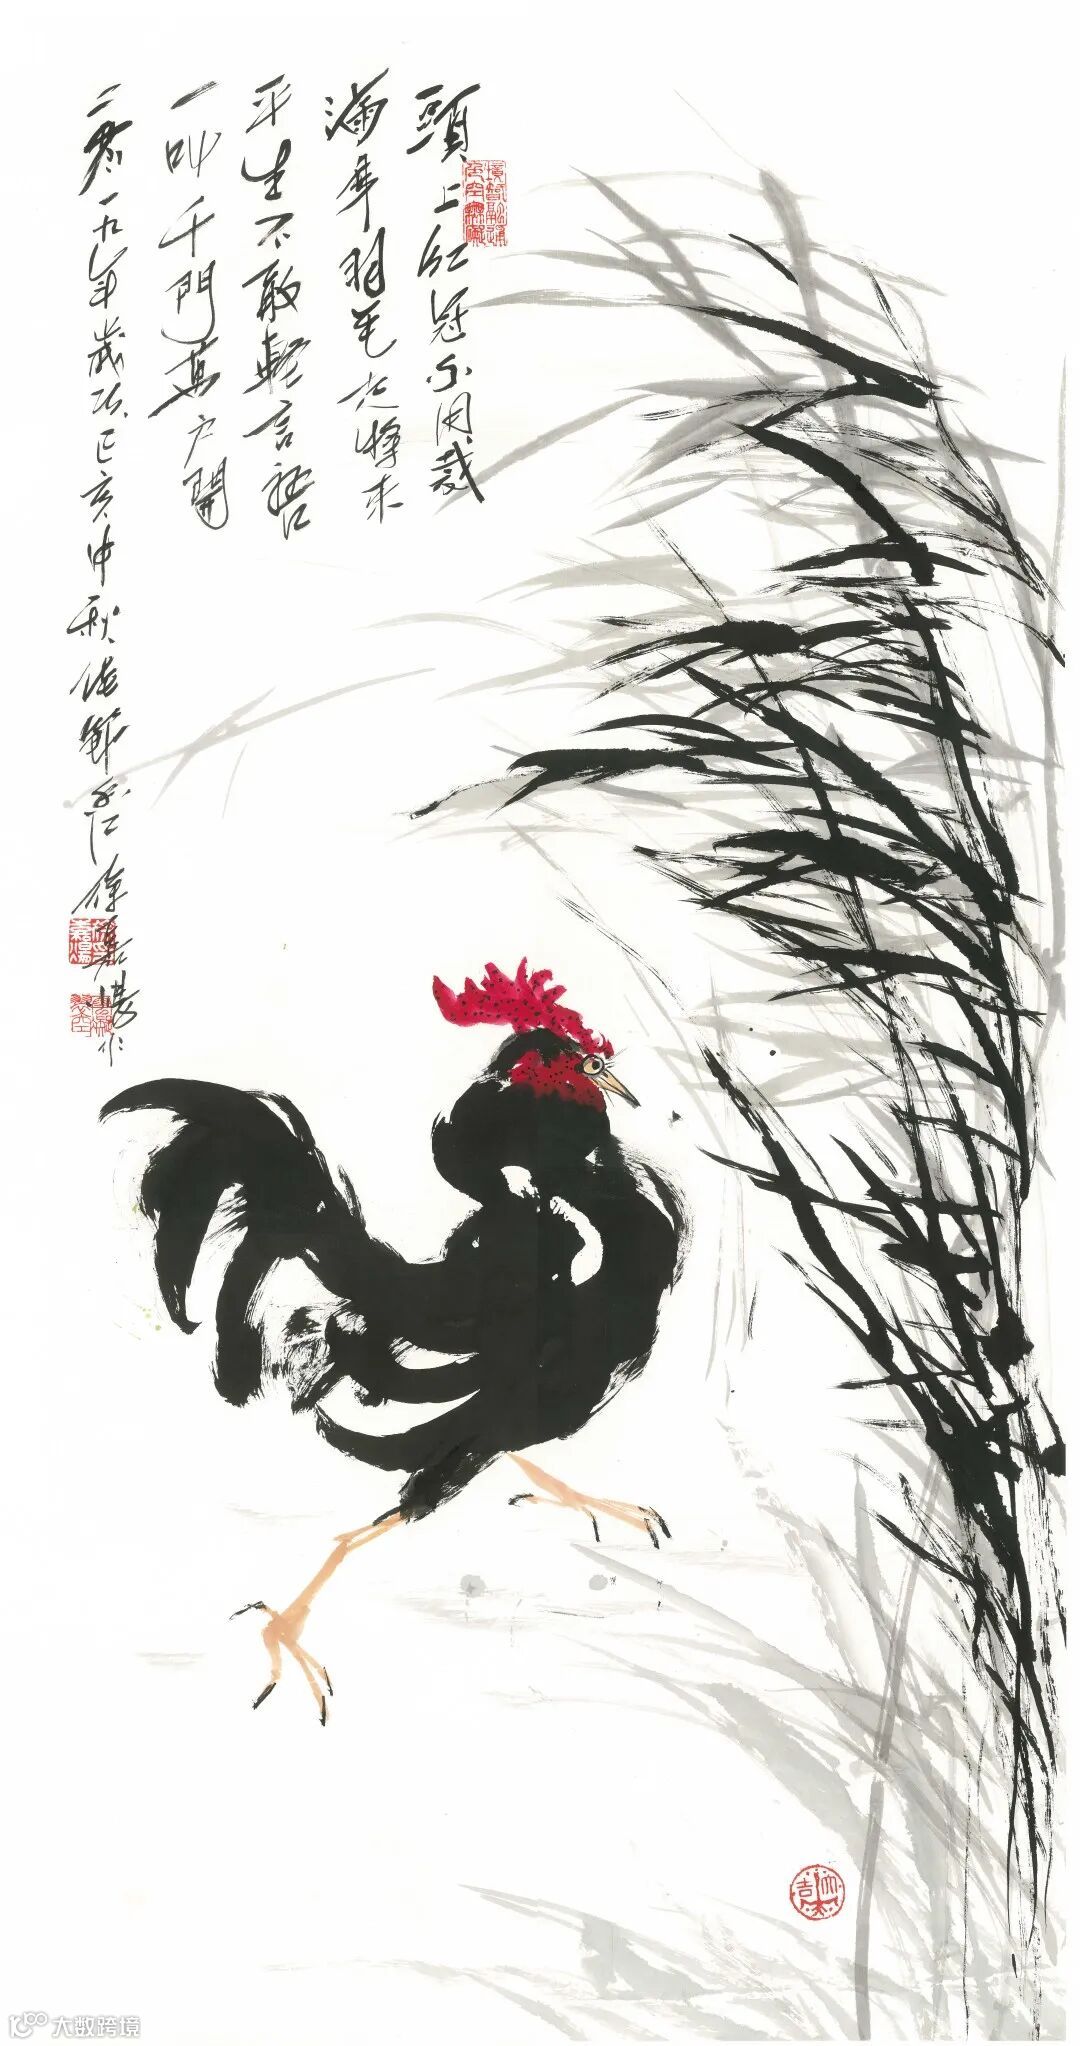 頭上紅冠不用裁
滿身羽毛走將来
平生不敢輕言語
一叫千門萬户開
二零一九年歲次己亥中秋佳節 徐嘉 作
大数跨境